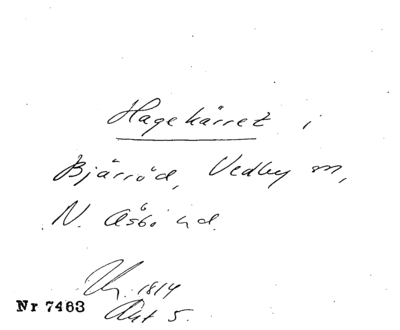 Hagekärret i
Bjärröd, Vedby sn,
N. Åsbo hd.
1814
Akt 5.
Nr 7463